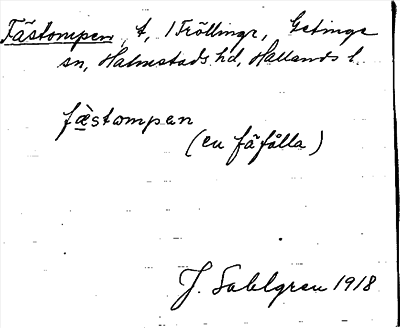 Fästompen, t, 1 Fröllinge, Getinge
sn, Halmstads hd, Hallands l.
fæ̀stompen
(en fäfålla)
J. Sahlgren 1918